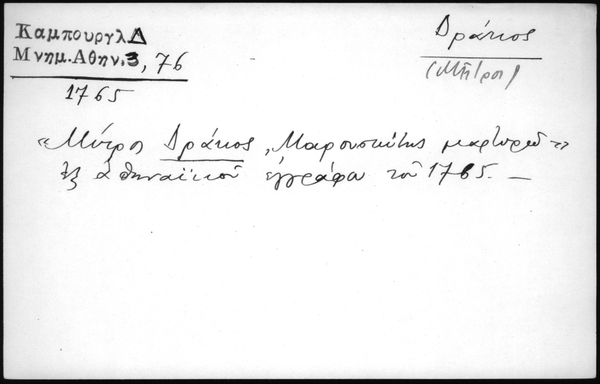 Καμπουργλ Δ
Μνημ. Αθην. 3, 76
1765
Δράκος
(Μῆτρος)
«Μῆτρος Δράκος, Μαρουσιώτης μαρτυρῶ»
ἐξ ἀθηναϊκοῦ ἐγγράφου τοῦ 1765. —